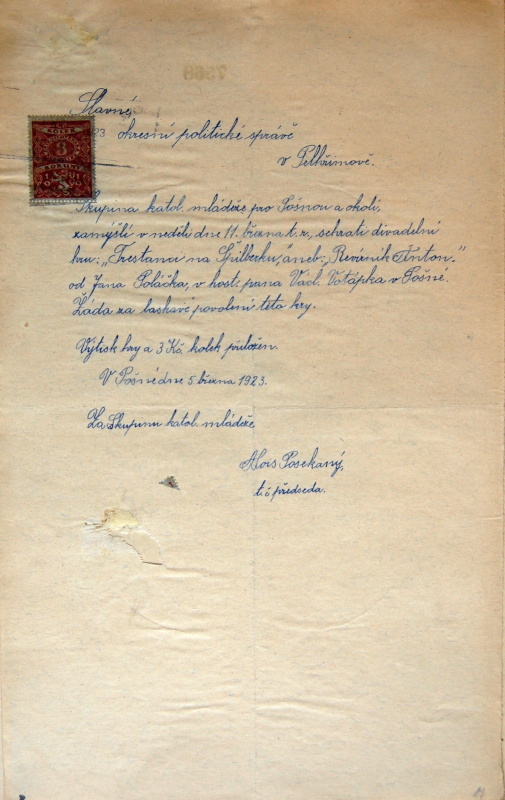 Slavné
okresní politické správě
v Pelhřimově.
KOLEK
3
KORUNY
Skupina katol. mládeže pro Pošnou a okolí,
zamýšlí v neděli dne 11. března t.r. sehrati divadelní
hru: „Trestanci na Špilberku," aneb: „Revírník Anton."
od Jana Poláčka, v host. pana Václ. Votápka v Pošné.
Žádá za laskavé povolení této hry.
Výtisk hry a 3 Kč. kolek přiložen.
V Pošné dne 5. března 1923.
Za Skupinu katol. mládeže
Alois Posekaný,
t. č. předseda.